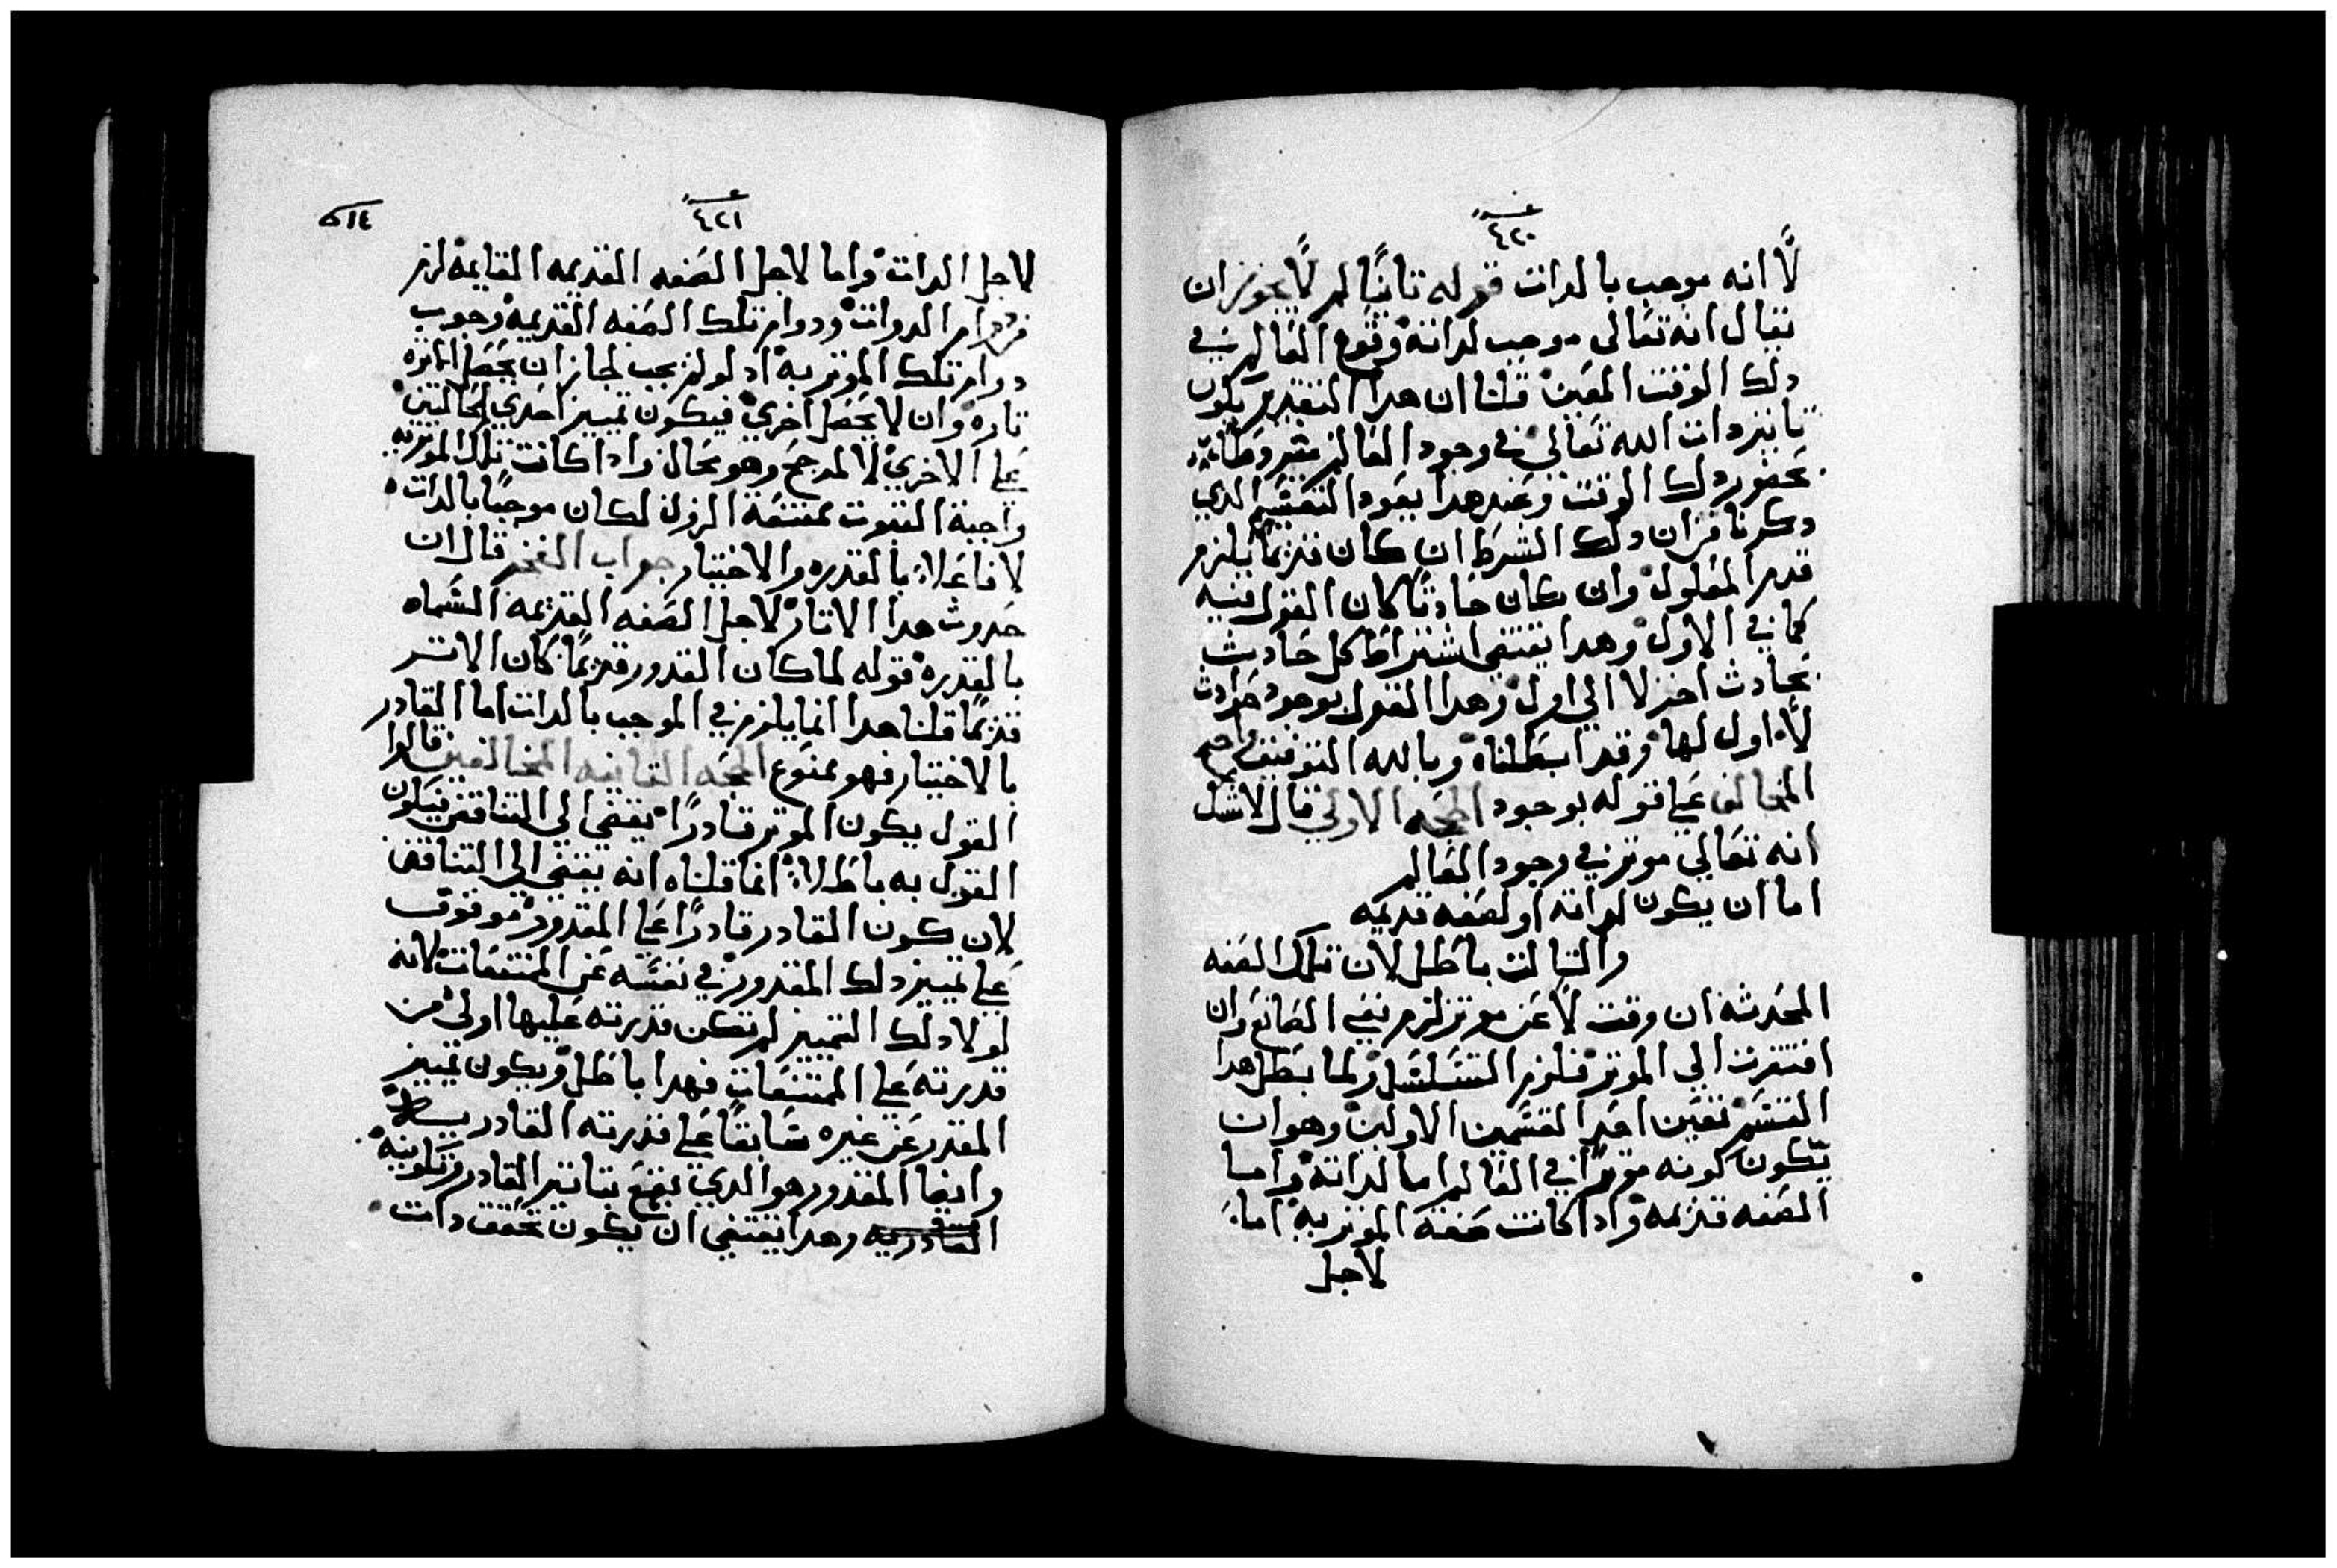 ٤٢٠
لا انه موجب بالدات قوله تانيًا لم لا يجوز ان
يقال انه تعالى موجب لداته وقوع العالم في
دلك الوقت المعين قلنا ان هدا التقدير يكون
تاتير دات الله تعالي في وجود العالم
بحضور دلك الوقت وعند هدا يعود التقسيم الدي
دكرنا من ان دلك الشرط ان كان قديمًا يلزم
قدم المعلول وان كان حادثا كان القول فيه
كما في الاول وهدا يقتضي اشتراط كل حادث
بحادث اخر لا الي اول وهدا القول بوجود حوادث
لا اول لها وقد ابطلناه وبالله التوفيق
المخالف علي قوله بوجود الحجه الاولي قال لا شك
انه تعالي موتر في وجود العالم
اما ان يكون لداته او لصفه قديمه
والتالت باطل لان تلك الصفه
المحدثه ان وقت لا عن موتر لزم نفي الصانع وان
افتقرت الي الموتر فلزم التسلسل ولما بطل هدا
القسم تعين احد القسمين الاولين وهو ان
يكون كونه موترًا في العالم اما لداته واما
لصفه قديمه وادا كانت صفة الموتريه اما
لاجل
٤٢١
٥١٤
لاجل الدات واما لاجل الصفه القديمه القايمه لزم
من دوام الدوات ودوام تلك الصفه القديمه وجوب
دوام تلك الموتريه اد لو لم يجب لجاز ان يحصل
تاره وان لا يحصل اخري فيكون تمييز احدي الحالتين
علي الاخري لا لمرجح وهو محال وادا كانت تلك الموتريه
واجبة التبوت ممتنعة الزوال لكان موجبًا بالدات
لا فاعلا بالقدره والاختيار جواب الفخر قال ان
حدوث هدا الاتار لاجل الصفه القديمه المسماه
بالقدره قوله لما كان القدور قديمًا كان الاتر
قديمًا قلنا هدا انما يلزم في الموجب بالدات اما القادر
بالاختيار فهو ممنوع الحجه التانيه المخالفين قالوا
القول بكون الموتر قادرًا يفضي الي التناقض فيكون
القول به باطلا انما قلناه انه يفضي الي التناقض
لان كون القادر قادرًا علي المقدور موقوف
علي تمييز دلك المقدور في نفسه عن الممتنعات لانه
لولا دلك التمييز لم تكن قدرته عليها اولي من
قدرته علي الممتنعات فهدا باطل ويكون تمييز
المقدر عن غيره سابقًا علي قدرته القادر
وايضا المقدور هو الدي يقع بتاتير القادر
القادريه وهدا يقتضي ان يكون تحقق دات